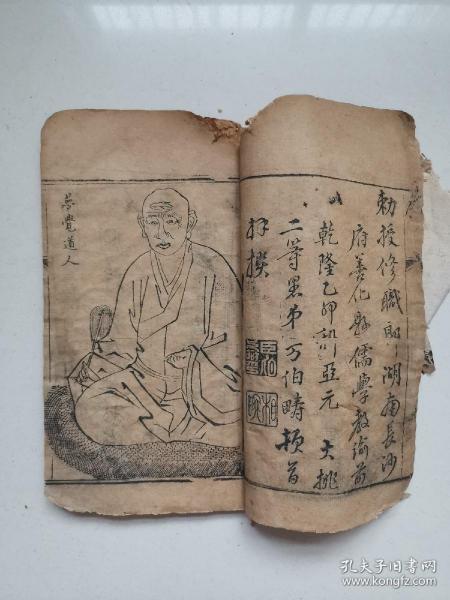 勅授修職郎湖南長沙
府善化縣儒學教諭前
乾隆乙卯科亞元 大挑
二等愚弟万伯疇頓首
拜撰
夢覺道人
孔夫子旧书网
www.kongfz.com